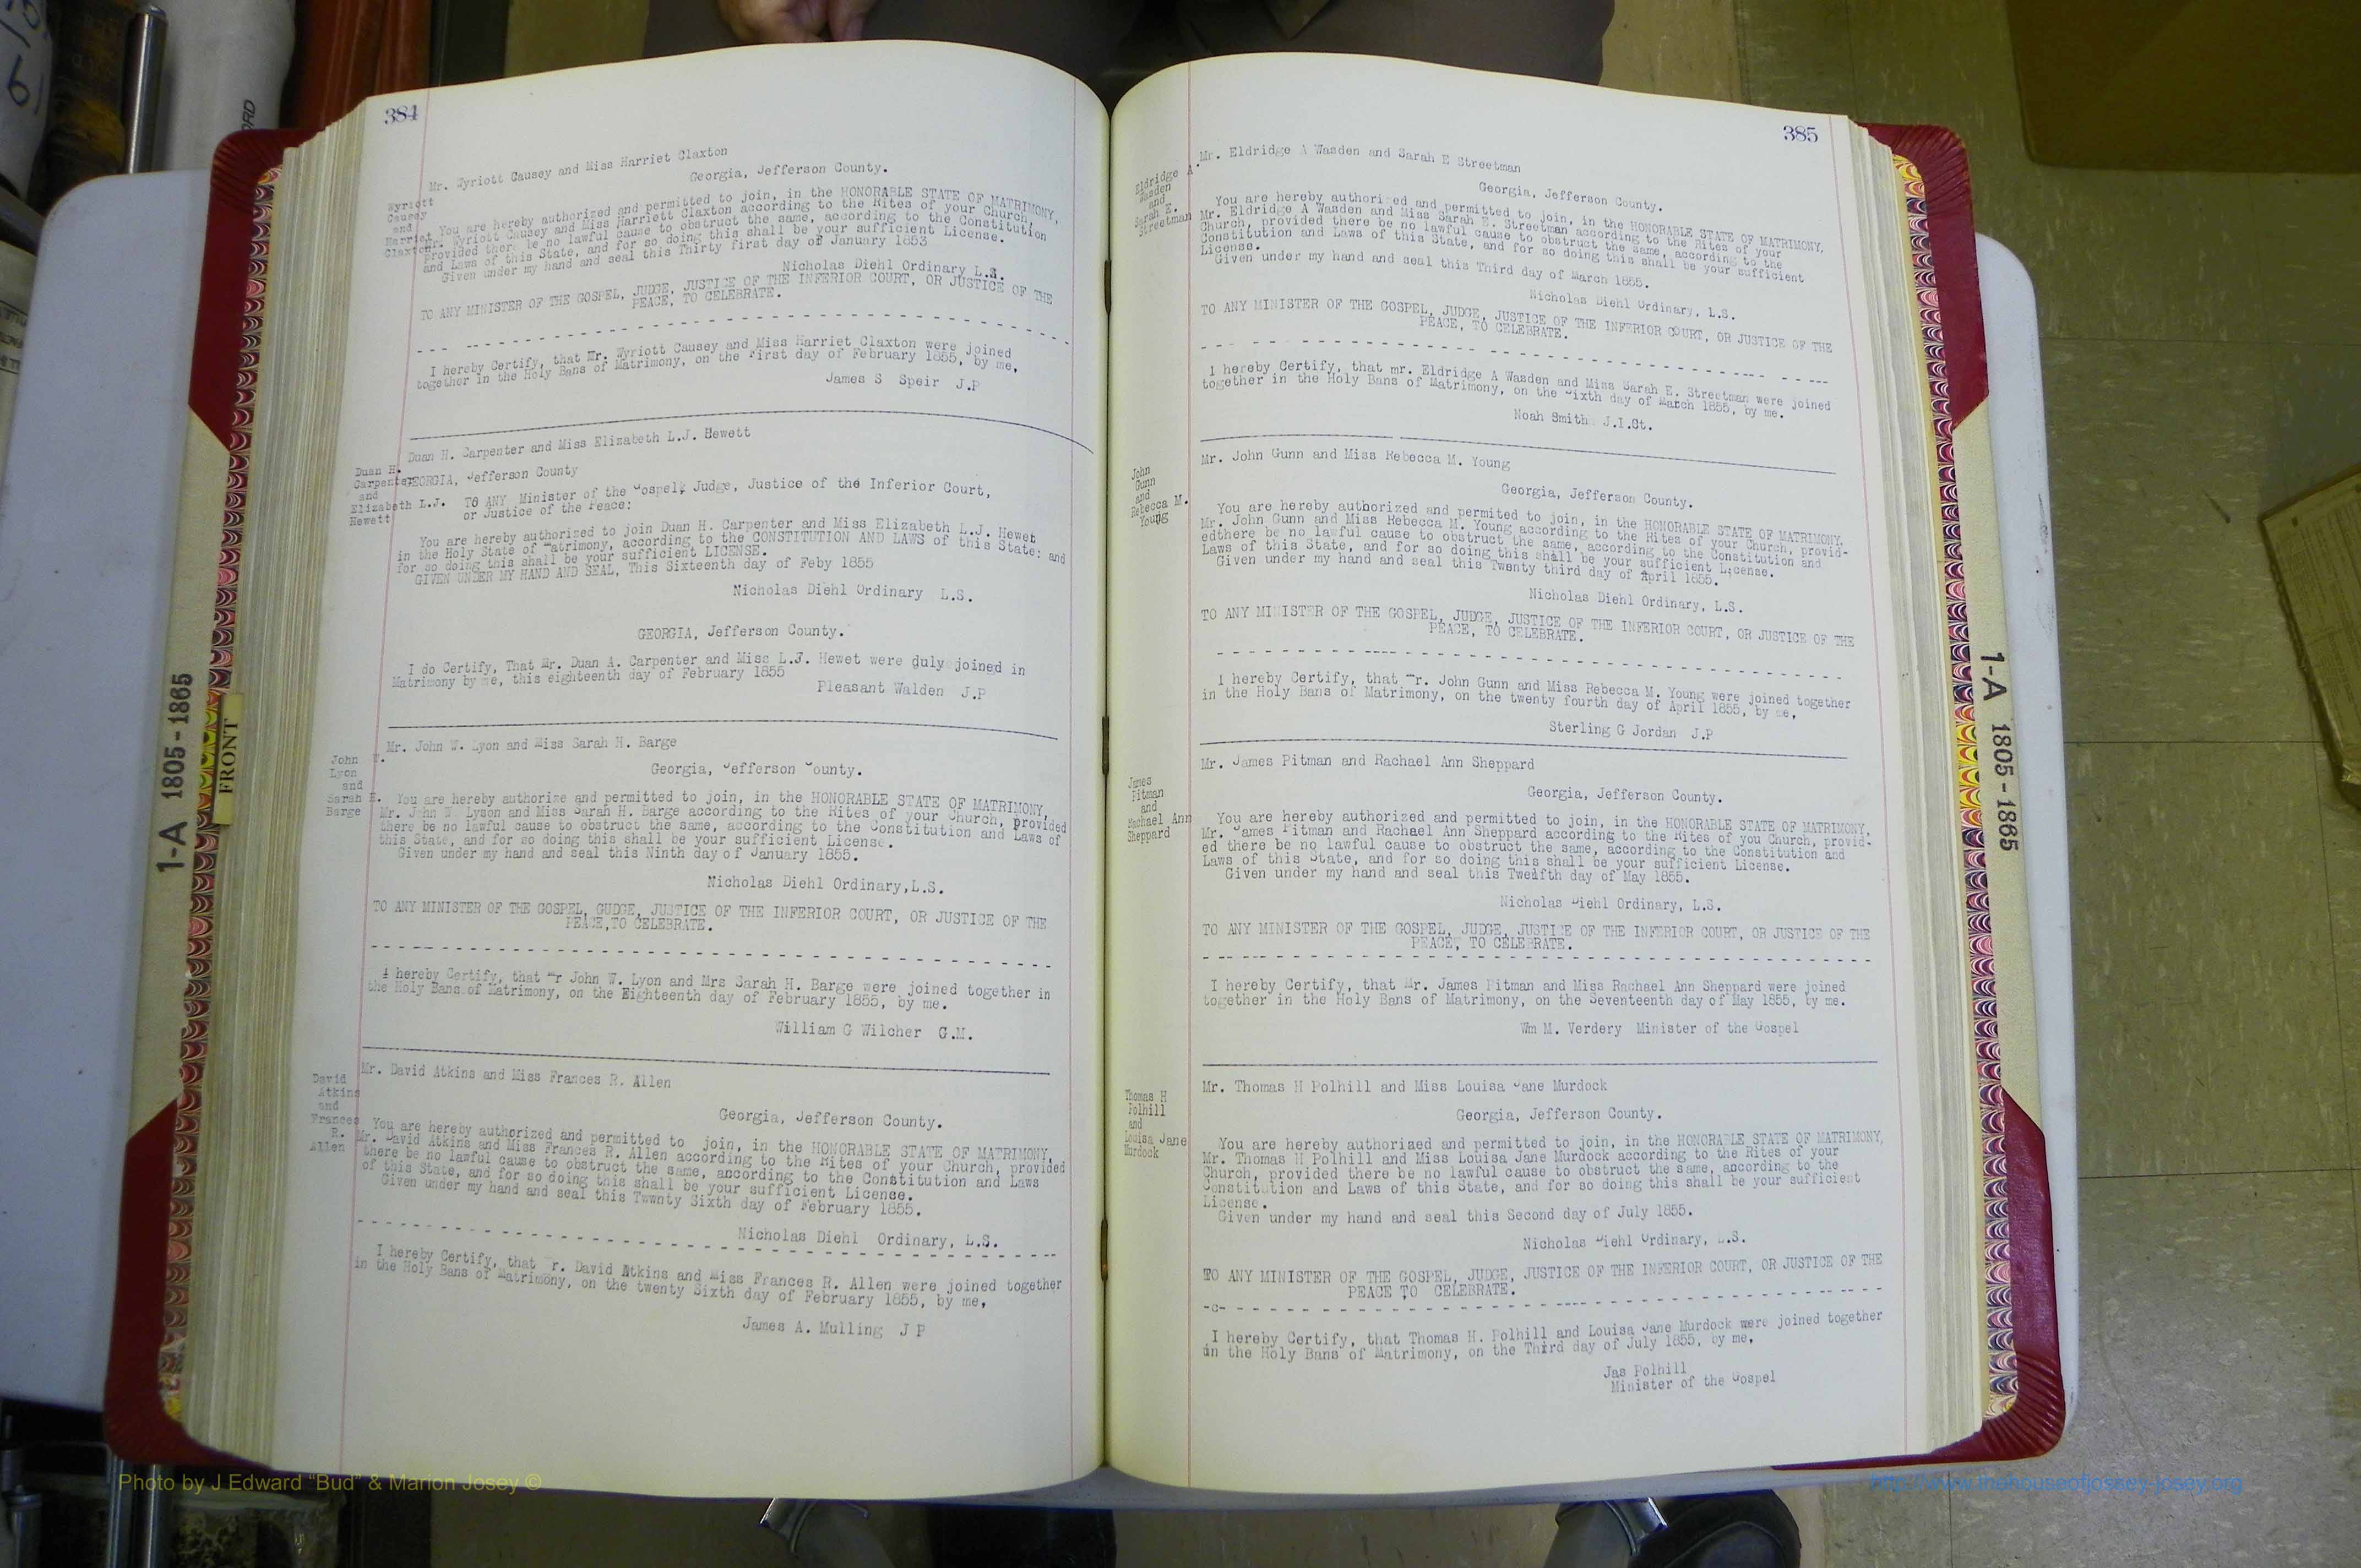 384
Mr. Wyriott Causey and Miss Harriet Claxton
Georgia, Jefferson County.
Wyriott
Causey
and
Harriet
Claxton
You are hereby authorized and permitted to join, in the HONORABLE STATE OF MATRIMONY,
Mr. Wyriott Causey and Miss Harriett Claxton according to the Rites of your Church,
provided there be no lawful cause to obstruct the same, according to the Constitution
and Laws of this State, and for so doing this shall be your sufficient License.
Given under my hand and seal this Thirty first day of January 1853
Nicholas Diehl Ordinary L.S.
TO ANY MINISTER OF THE GOSPEL, JUDGE, JUSTICE OF THE INFERIOR COURT, OR JUSTICE OF THE
PEACE, TO CELEBRATE.
I hereby Certify, that Mr. Wyriott Causey and Miss Harriet Claxton were joined
together in the Holy Bans of Matrimony, on the First day of February 1855, by me,
James S Speir J.P
Duan H. Carpenter and Miss Elizabeth L.J. Hewett
Duan H.
Carpenter
and
Elizabeth L.J.
Hewett
GEORGIA, Jefferson County
TO ANY Minister of the Gospel, Judge, Justice of the Inferior Court,
or Justice of the Peace:
You are hereby authorized to join Duan H. Carpenter and Miss Elizabeth L.J. Hewet
in the Holy State of Matrimony, according to the CONSTITUTION AND LAWS of this State: and
for so doing this shall be your sufficient LICENSE.
GIVEN UNDER MY HAND AND SEAL, This Sixteenth day of Feby 1855
Nicholas Diehl Ordinary L.S.
GEORGIA, Jefferson County.
I do Certify, That Mr. Duan A. Carpenter and Miss L.J. Hewet were duly joined in
Matrimony by me, this eighteenth day of February 1855
Pleasant Walden J.P
Mr. John W. Lyon and Miss Sarah H. Barge
John W.
Lyon
and
Sarah H.
Barge
Georgia, Jefferson County.
You are hereby authorize and permitted to join, in the HONORABLE STATE OF MATRIMONY,
Mr. John W. Lyson and Miss Sarah H. Barge according to the Rites of your Church, provided
there be no lawful cause to obstruct the same, according to the Constitution and Laws of
this State, and for so doing this shall be your sufficient License.
Given under my hand and seal this Ninth day of January 1855.
Nicholas Diehl Ordinary,L.S.
TO ANY MINISTER OF THE GOSPEL, GUDGE, JUSTICE OF THE INFERIOR COURT, OR JUSTICE OF THE
PEACE,TO CELEBRATE.
I hereby Certify, that Mr John W. Lyon and Mrs Sarah H. Barge were joined together in
the Holy Bans of Matrimony, on the Eighteenth day of February 1855, by me.
William G Wilcher G.M.
Mr. David Atkins and Miss Frances R. Allen
David
Atkins
and
Frances
R.
Allen
Georgia, Jefferson County.
You are hereby authorized and permitted to join, in the HONORABLE STATE OF MATRIMONY,
Mr. David Atkins and Miss Frances R. Allen according to the Rites of your Church, provided
there be no lawful cause to obstruct the same, according to the Constitution and Laws
of this State, and for so doing this shall be your sufficient License.
Given under my hand and seal this Twwnty Sixth day of February 1855.
Nicholas Diehl Ordinary, L.S.
I hereby Certify, that Mr. David Atkins and Miss Frances R. Allen were joined together
in the Holy Bans of Matrimony, on the twenty Sixth day of February 1855, by me,
James A. Mulling J P
385
Mr. Eldridge A Wasden and Sarah E Streetman
Eldridge A.
Wasden
and
Sarah E.
Streetman
Georgia, Jefferson County.
You are hereby authorized and permitted to join, in the HONORABLE STATE OF MATRIMONY,
Mr. Eldridge A Wasden and Miss Sarah E. Streetman according to the Rites of your
Church, provided there be no lawful cause to obstruct the same, according to the
Constitution and Laws of this State, and for so doing this shall be your sufficient
License.
Given under my hand and seal this Third day of March 1855.
Nicholas Diehl Ordinary, L.S.
TO ANY MINISTER OF THE GOSPEL, JUDGE, JUSTICE OF THE INFERIOR COURT, OR JUSTICE OF THE
PEACE, TO CELEBRATE.
I hereby Certify, that mr. Eldridge A Wasden and Miss Sarah E. Streetman were joined
together in the Holy Bans of Matrimony, on the Sixth day of March 1855, by me.
Noah Smith J.I.Ct.
Mr. John Gunn and Miss Rebecca M. Young
John
Gunn
and
Rebecca M.
Young
Georgia, Jefferson County.
You are hereby authorized and permited to join, in the HONORABLE STATE OF MATRIMONY,
Mr. John Gunn and Miss Rebecca M. Young according to the Rites of your Church, provid-
edthere be no lawful cause to obstruct the same, according to the Constitution and
Laws of this State, and for so doing this shall be your sufficient License.
Given under my hand and seal this Twenty third day of April 1855.
Nicholas Diehl Ordinary, L.S.
TO ANY MINISTER OF THE GOSPEL, JUDGE, JUSTICE OF THE INFERIOR COURT, OR JUSTICE OF THE
PEACE, TO CELEBRATE.
I hereby Certify, that Mr. John Gunn and Miss Rebecca M. Young were joined together
in the Holy Bans of Matrimony, on the twenty fourth day of April 1855, by me,
Sterling G Jordan J.P
Mr. James Pitman and Rachael Ann Sheppard
James
Pitman
and
Rachael Ann
Sheppard
Georgia, Jefferson County.
You are hereby authorized and permitted to join, in the HONORABLE STATE OF MATRIMONY,
Mr. James Pitman and Rachael Ann Sheppard according to the Rites of you Church, provid-
ed there be no lawful cause to obstruct the same, according to the Constitution and
Laws of this State, and for so doing this shall be your sufficient License.
Given under my hand and seal this Twelfth day of May 1855.
Nicholas Diehl Ordinary, L.S.
TO ANY MINISTER OF THE GOSPEL, JUDGE, JUSTICE OF THE INFERIOR COURT, OR JUSTICE OF THE
PEACE, TO CELEBRATE.
I hereby Certify, that Mr. James Pitman and Miss Rachael Ann Sheppard were joined
together in the Holy Bans of Matrimony, on the Seventeenth day of May 1855, by me.
Wm M. Verdery Minister of the Gospel
Mr. Thomas H Polhill and Miss Louisa Jane Murdock
Thomas H
Polhill
and
Louisa Jane
Murdock
Georgia, Jefferson County.
You are hereby authorized and permitted to join, in the HONORABLE STATE OF MATRIMONY,
Mr. Thomas H Polhill and Miss Louisa Jane Murdock according to the Rites of your
Church, provided there be no lawful cause to obstruct the same, according to the
Constitution and Laws of this State, and for so doing this shall be your sufficient
License.
Given under my hand and seal this Second day of July 1855.
Nicholas Diehl Ordinary, L.S.
TO ANY MINISTER OF THE GOSPEL, JUDGE, JUSTICE OF THE INFERIOR COURT, OR JUSTICE OF THE
PEACE TO CELEBRATE.
-c-
I hereby Certify, that Thomas H. Polhill and Louisa Jane Murdock were joined together
in the Holy Bans of Matrimony, on the Third day of July 1855, by me,
Jas Polhill
Minister of the Gospel
1-A 1805-1865
FRONT
1-A 1805-1865
Photo by J Edward "Bud" & Marion Josey ©
http://www.thehouseofjossey-josey.org